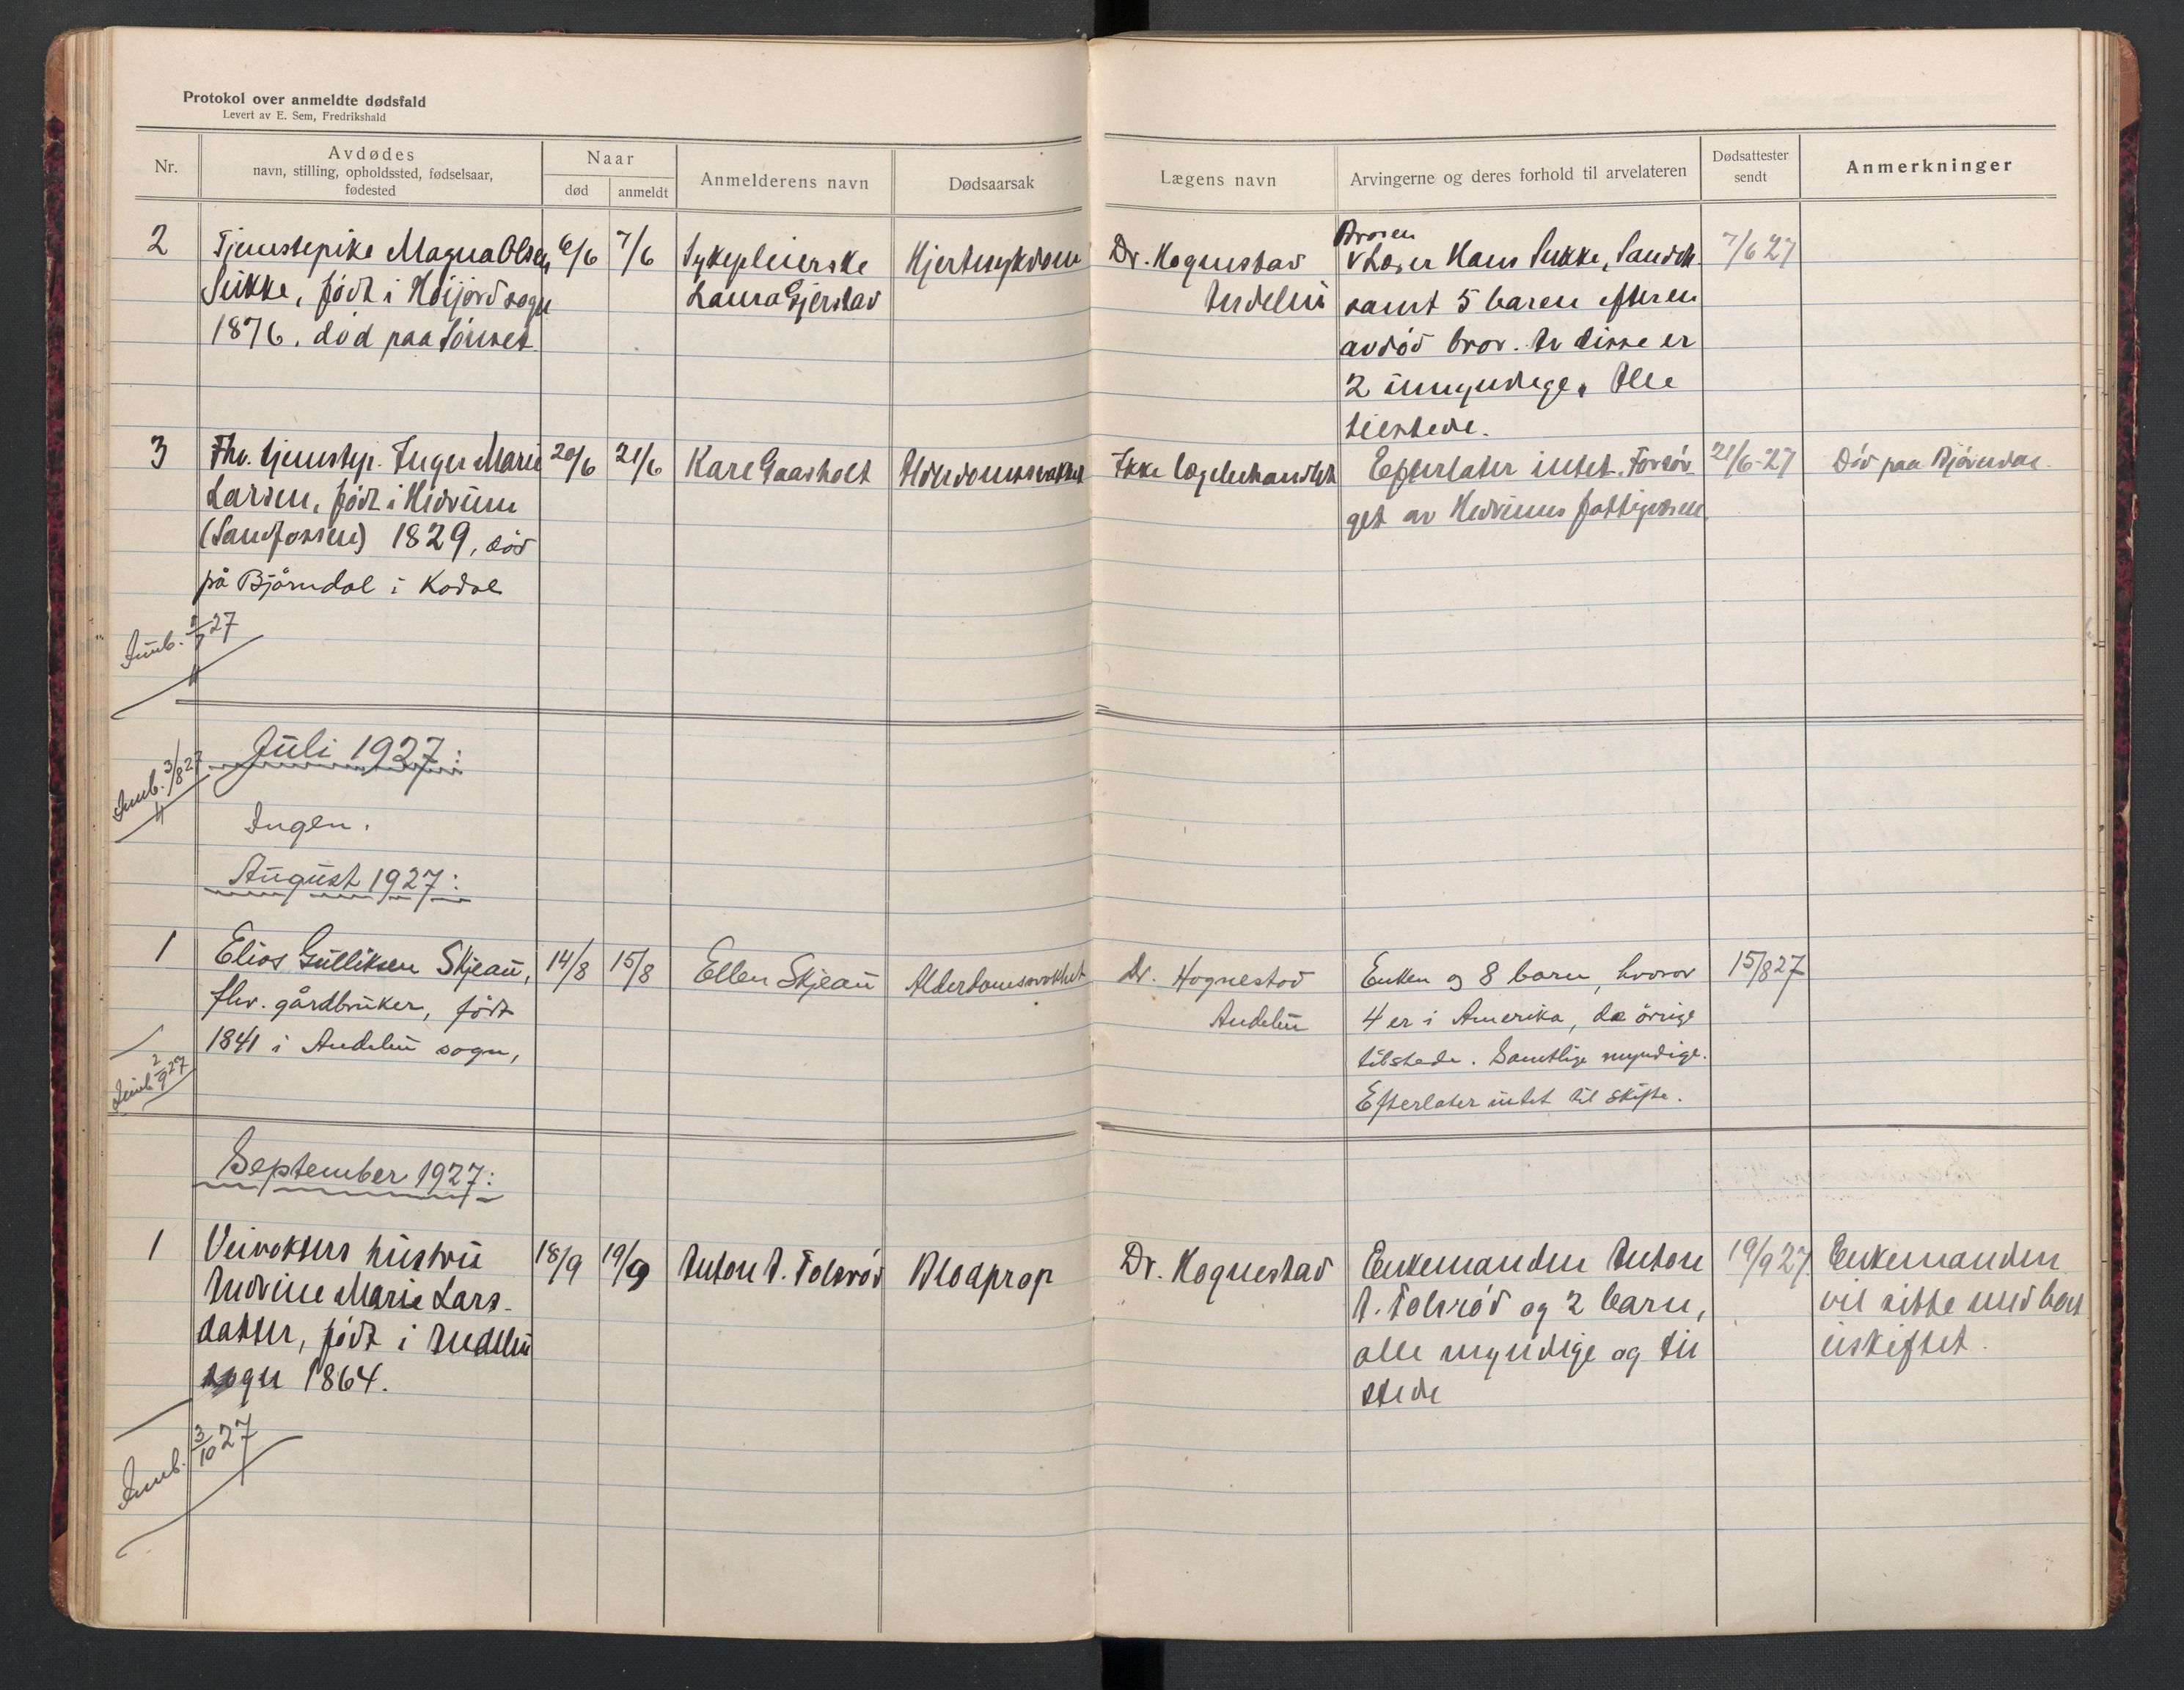 Protokol over anmeldte dødsfald
Levert av E. Sem, Fredrikshald
Nr.
Avdødes
navn, stilling, opholdssted, fødselsaar,
fødested
Naar
død
anmeldt
Anmelderens navn
Dødsaarsak
Lægens navn
Arvingerne og deres forhold til arvelateren
Dødsattester
sendt
Anmerkninger
2
Tjenstepike Magna Olsen
Sukke, født i Höijord sogn
1876, død paa Sönset
6/6
7/6
Sykepleierske
Laura Gjerstad
Hjertesykdom
Dr. Hognestad
Andebu
Broren
Hans Sukke, Sandeh.
samt 5 barn efter en
avdød bror. Av disse er
2 umyndige. Alle
tilstede.
7/6 27
3
Fhv. tjenstep. Inger Marie
Larsen, født i Hedrum
(Sandfossen) 1829, død
på Björndal i Kodal
20/6
21/6
Kare Gaasholt
Alderdomssvakhet
Ikke lægebehandlet
Efterlater intet. Forsör-
get av Hedrums fattigvæsen
21/6-27
Död paa Björndal.
Innb. 2/7 27
Juli 1927:
Innb. 3/8 27
Ingen.
August 1927:
1
Elias Gulliksen Skjeau,
fhv. gårdbruker, født
1841 i Andebu sogn,
14/8
15/8
Ellen Skjeau
Alderdomssvakhet
Dr. Hognestad
Andebu
Enken og 8 barn, hvorav
4 er i Amerika, de övrige
tilstede. Samtlige myndige.
Efterlater intet til skifte.
15/8 27
Innb. 2/9 27
September 1927:
1
Veivokters hustru
Andrine Marie Lars-
datter, født i Andebu
sogn 1864.
18/9
19/9
Anton A. Tolsröd
Blodprop
Dr. Hognestad
Enkemanden Anton
A. Tolsröd og 2 barn,
alle myndige og til
stede
19/9 27
Enkemanden
vil sitte med boet
uskiftet.
Innb. 3/10 27